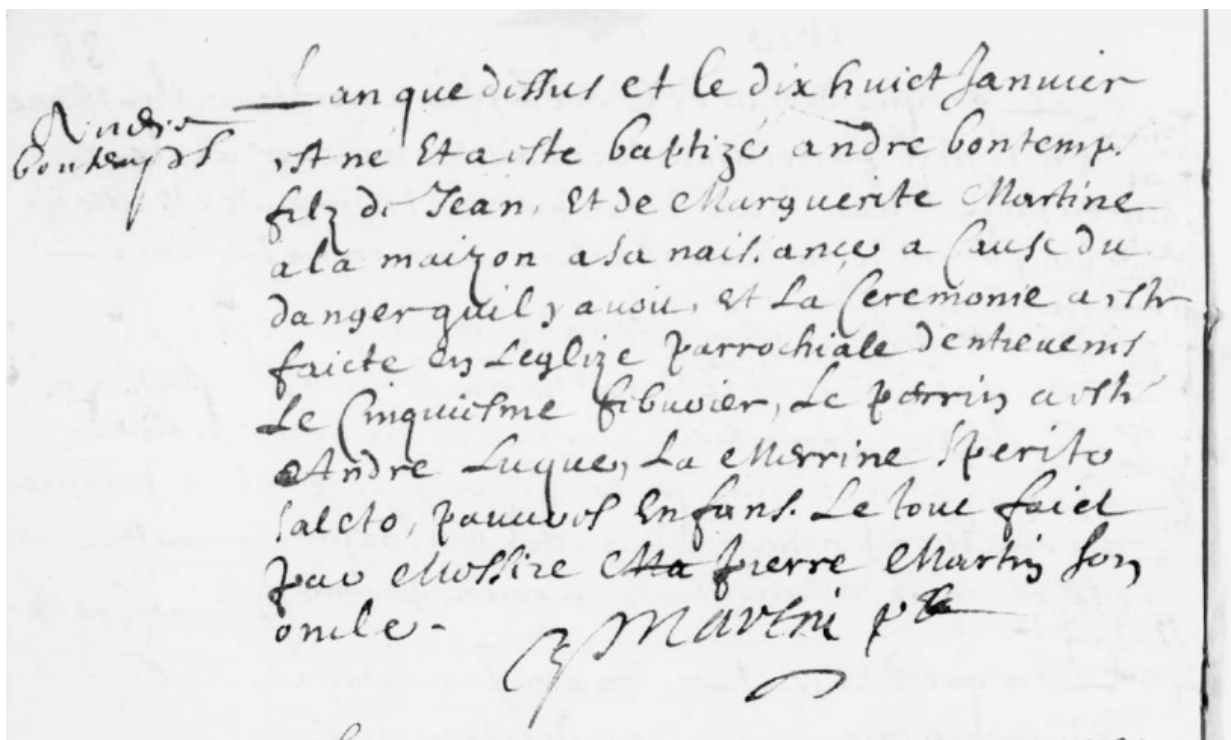 Andre
bontemps
Lan que dessus et le dix huict Janvier
est né et a este baptizé andre bontemps
filz de Jean, et de Marguerite Martine
a la maizon a sa naissance a cause du
danger quil y avoit, et la ceremonie a esté
faicte en leglize parrochiale dentrevenes
le cinquiesme febvrier, le perrin a esté
Andre Luque, la Merrine Sperito
pauvres enfans. Le tout faict
par Messire pierre Martin son
oncle.
Martin ptre